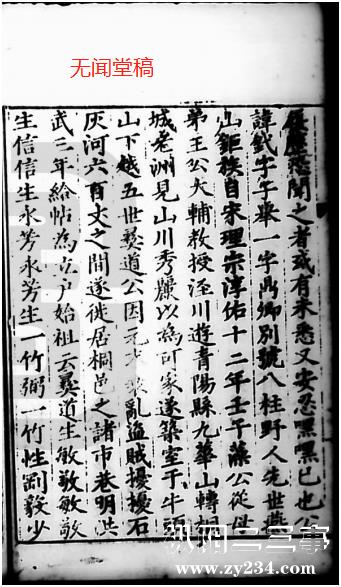 无闻堂稿
聞之者或有未悉又安忍嘿嘿已也公
諱釴字子舉一字鼎卿別號八柱野人先世
山鉅族自宋理宗淳佑十二年壬子藻公從
弟王公大輔教授涇川遊青陽縣九華山轉
城老洲見山川秀麗以為可家遂築室于牛頭
山下越五世彜道公因元末亂盜賊擾擾石
灰河六百丈之間遂徙居桐邑之諸市巷明洪
武三年給帖為立户始祖云彜道生敏敏敏敏
生信信生永芳永芳生一竹弼一竹性剛毅少
枞阳二三事
www.zy234.com